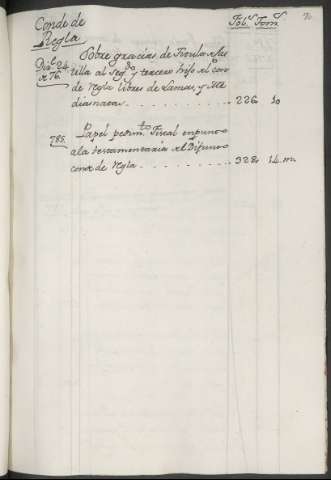 Conde de
Regla
Fol.s Tom.s
Dic.e 24
de 76.
Sobre gracias de Titulo de Cas
tilla al seg.do y tercero hijo del con
de de Regla libres de Lanzas, y Me
dias natas . . . . . . . . . . 226. 10
785. Papel pedim.to Fiscal
a la testamentaria del Difunto
conde de Regla . . . . . . . . . 328. 14. m.